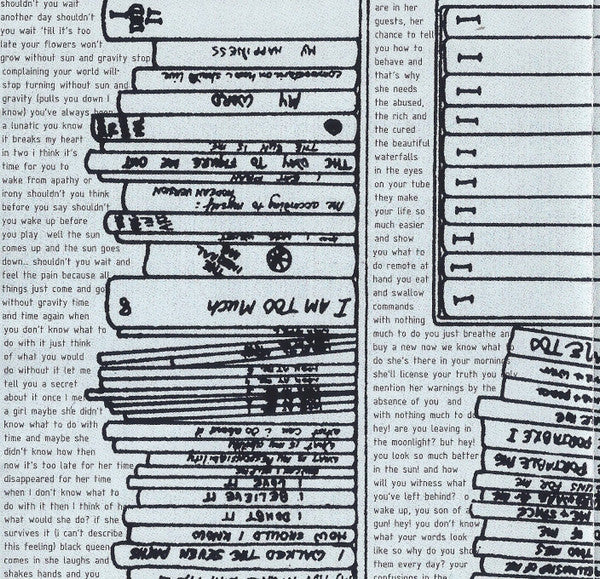 shouldn't you wait
another day shouldn't
you wait 'till it's too
late your flowers won't
grow without sun and gravity stop
complaining your world will
stop turning without sun and
gravity (pulls you down I
know) you've always been
a lunatic you know
it breaks my heart
in two i think it's
time for you to
wake from apathy or
irony shouldn't you think
before you say shouldn't
you wake up before
you play well the sun
comes up and the sun goes
down.. shouldn't you wait and
feel the pain because all
things just come and go
without gravity time
and time again when
you don't know what to
do with it just think
of what you would
do without it let me
tell you a secret
about it once I met
a girl maybe she didn't
know what to do with
time and maybe she
didn't know how then
now it's too late for her time
disappeared for her time
when I don't know what to
do with it then I think of her
what would she do? if she
survives it (i can't describe
this feeling) black queen
comes in she laughs and
shakes hands and you
MY HAPPINESS
MY WORD
THE SUN IS ME
THE WAY TO FIGURE ME OUT
I EAT MEAN
me according to myself:
I AM TOO MUCH
what can i do about it
what is my
what is my responsibility
I LOVE IT
I BELIEVE IT
I DOUBT IT
HOW SHOULD I KNOW
I WALKED THE SEVEN
are in her
guests, her
chance to tell
you how to
behave and
that's why
she needs
the abused,
the rich and
the cured
the beautiful
waterfalls
in the eyes
on your tube
they make
your life so
much easier
and show
you what to
do remote at
hand you eat
and swallow
commands
with nothing
much to do you just breathe and
buy a new now we know what to
do she's there in your mornings
she'll license your truth you only
mention her warnings by the
absence of you and
with nothing much to do
hey! are you leaving in
the moonlight? but hey!
you look so much better
in the sun and how
will you witness what
you've left behind?
wake up, you son of a
gun! hey! you don't know
what your words look
like so why do you sho
them every day? your
confusions in the
I
I
I
I
I
I
I
I
I
ME TOO
PORTABLE I
PORTABLE ME
SUNS FOR ME
ME & SPACE
OF ME
TWO MES